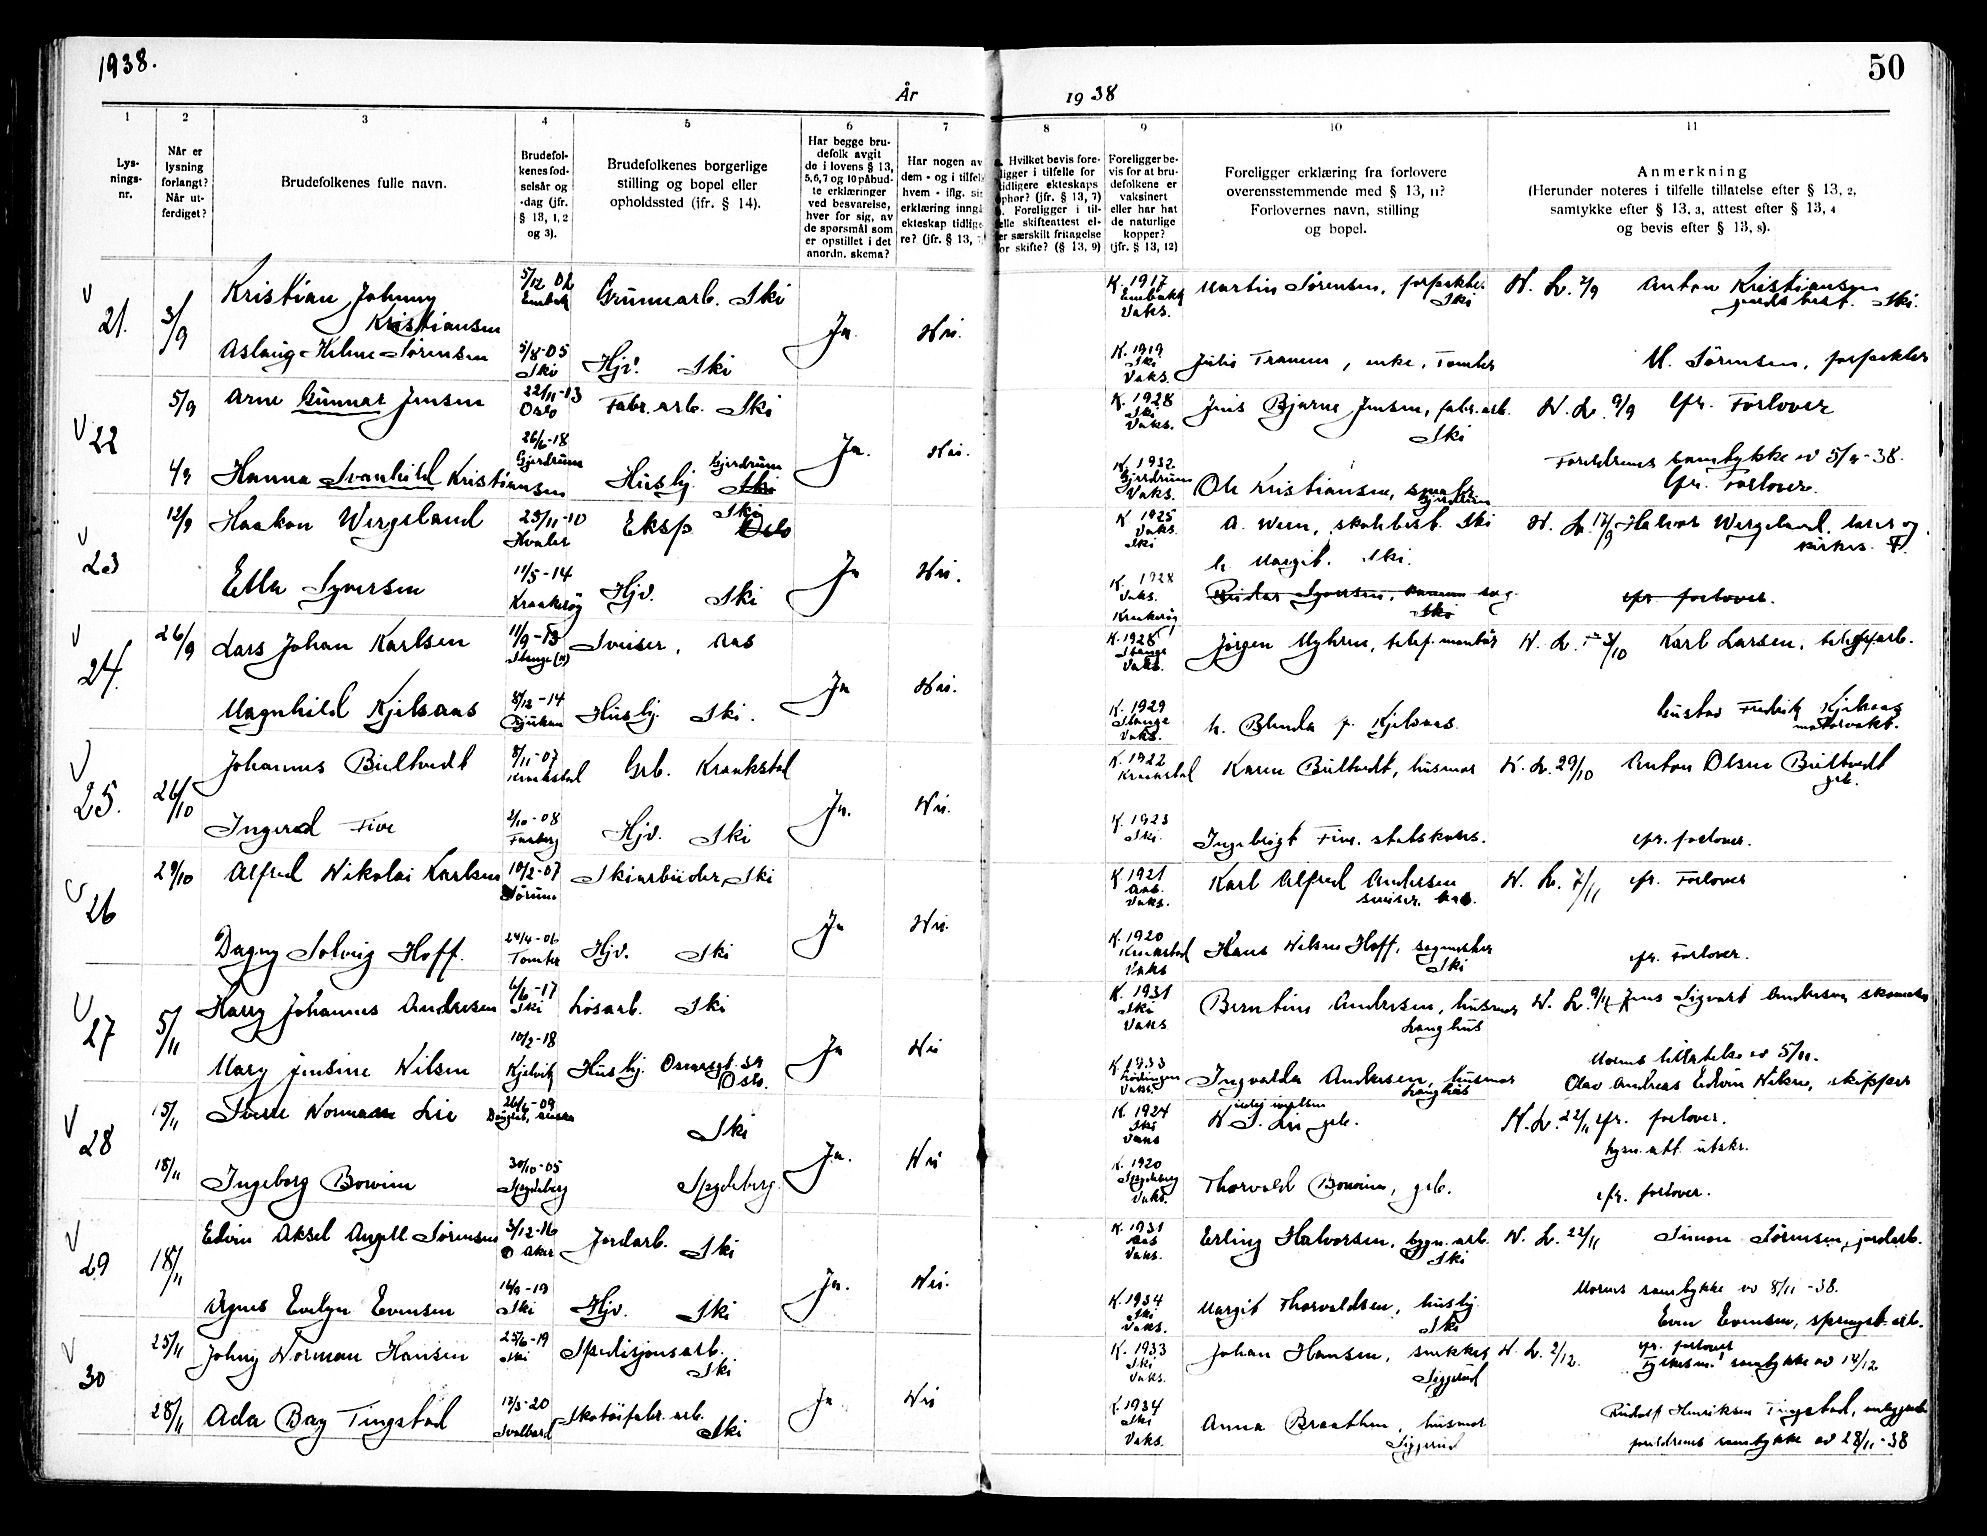 1938.
50
År
19 38
1
2
3
4
5
6
7
8
9
10
11
Lys-
nings-
nr.
Når er
lysning
forlangt?
Når ut-
ferdiget?
Brudefolkenes fulle navn.
Brudefol-
kenes fød-
selsår og
-dag (jfr.
§ 13, 1, 2
og 3).
Brudefolkenes borgerlige
stilling og bopel eller
opholdssted (jfr. § 14).
Har begge bru-
defolk avgit
de i lovens § 13,
5,6,7 og 10 påbud-
te erklæringer
ved besvarelse,
hver for sig, av
de spørsmål som
er opstillet i det
anordn. skema?
Har nogen av
dem - og i tilfel
hvem - iflg. si
erklæring inngå
ekteskap tidlige
re? (jfr. § 13, 7
a. Hvilket bevis fore-
ligger i tilfelle for
tidligere ekteskaps
ophør? (jfr. § 13, 7)
b. Foreligger i til-
felle skifteattest el-
er særskilt fritagelse
for skifte? (§ 13, 9)
Foreligger be-
vis for at bru-
defolkene er
vaksinert
eller har hat
de naturlige
kopper?
(jfr. § 13, 12)
Foreligger erklæring fra forlovere
overensstemmende med § 13, 11?
Forlovernes navn, stilling
og bopel.
Anmerkning
(Herunder noteres i tilfelle tillatelse efter § 13, 2,
samtykke efter § 13, 3, attest efter § 13, 4
og bevis efter § 13, 8).
21. 3/9 Kristian Johnny 5/12 02 Grünnarb. Ski K. 1917 Martin Sørensen, forpakter N. L. 7/9 Anton Kristiansen
Kristiansen Vaks. Ski gårdsbest. Ski.
Ja Nei.
Aslaug Helene Sørensen 5/8-05 Ski Hjv. Ski K. 1919 Ski Vaks. enke, Tomter M. Sørensen, forpakter
22 5/9 Arne Gunnar Jensen 22/11-13 Oslo Fabr. arb. Ski K. 1928 Ski Vaks. Jens Bjarne Jensen, fabr. arb. Ski N. L. 9/9 cfr. Forlover
Ja. Nei.
Hanna Svanhild Kristiansen 26/6-18 Gjerdrum Husbj. Gjerdrum Ski K. 1932 Gjerdrum Vaks. Ole Kristiansen, Gjerdrum Foreldrenes samtykke cfr. Forlover.
23 12/9 Haakon Wergeland 23/11-10 Hvaler Eksp. Ski Oslo K 1925 Vaks. Ski A. Ween, Ski N. L. 17/9 Halvor Wergeland, lærer og
h. Margit. Ski.
Ja Nei.
Ella Syversen 11/5-14 Kraakerøy Hjv. Ski K. 1928 Vaks. Kraakerøy Reidar Syversen, Ski cfr forlover.
24. 26/9 Lars Johan Karlsen 11/9-13 Stange Sveiser, Aas K. 1928 Stange Vaks. Jørgen Myhren, telef. montør N. L. 3/10 Karl Larsen,
Ja Nei.
Magnhild Kjelsaas 8/12-14 Rjukan Husbj. Ski. K. 1929 Stange Vaks. h. Blenda f. Kjelsaas. Gustav Fredrik Kjelsaas
25. 26/10 Johannes Bültvedt 8/11-07 Kraakstad Grb. Kraakstad K. 1922 Kraakstad Karen Bültvedt, husmor N. L. 29/10 Anton Olsen Bültvedt
Ja. Nei.
Ingerd Five 2/10-08 Hjv. Ski K. 1923 Ski. Ingebrigt Five. cfr. forlover.
26 29/10 Alfred Nikolai Karlsen 10/2-07 Sørum Skiarbeider, Ski K 1921 Aas. Vaks. Karl Alfred Andersen sveiser Aas. N. L. 7/11 cfr. Forlover
Ja Nei.
Dagny Solveig Hoff. 24/4-06 Tomter Hjv. Ski K. 1920 Kraakstad Vaks Hans Nilsen Hoff, Ski cfr. Forlover.
27 5/11 Harry Johannes Andresen 6/6-17 Ski Løsarb. Ski K. 1931 Ski Vaks Berntine Andresen, husmor Langhus N. L. 9/11 Jens Sigvart Andresen,
Ja Nei
Mary Jensine Nilsen 10/2-18 Kjelvik Husbj. Oslo. K. 1933 Lødingen Vaks. Ingvalda Andresen, husmor Langhus Morens tillatelse av 5/11.
Olav Andreas Edvin Nilsen, skipper
28 15/11 Sverre Norman Lie 26/6-09 Ski K. 1924 Ski Vaks N. S. Lie grb. N. L. 22/11 cfr. forlover.
Ja. Nei
18/11 Ingeborg Bowim 30/10-05 Spydeberg Spydeberg. K. 1920 Spydeberg Vaks. Thorvald Bowim, grb. cfr. forlover.
29 18/11 Edvin Aksel Angell Sørensen 3/12-16 Ø Aker Jordarb. Ski K. 1931 Aas Vaks. Erling Halvorsen, bygn. arb. Ski N. L. 22/11 Simon Sørensen, jordarb.
Ja. Nei.
Agnes Evelyn Evensen 16/9-19 Ski Hjv. Ski K. 1934 Ski Vaks. Margit Thorvaldsen, husbj. Ski Morens samtykke av 8/11-38.
Even Evensen,
30 25/11 Johny Norman Hansen 25/6-19 Ski Spedisjonsarb. Ski K. 1933 Ski Vaks. Johan Hansen, snekker Siggerud N. L. 2/12. cfr. forlover
samtykke av
Ja Nei
28/11 Ada Bay Tingstad 17/3-20 Svalbard Skotøifabr. arb. Ski K. 1934 Ski Vaks. Anna Braathen, husmor Siggerud Rudolf Henriksen Tingstad,
foreldrenes samtykke av 28/11-38